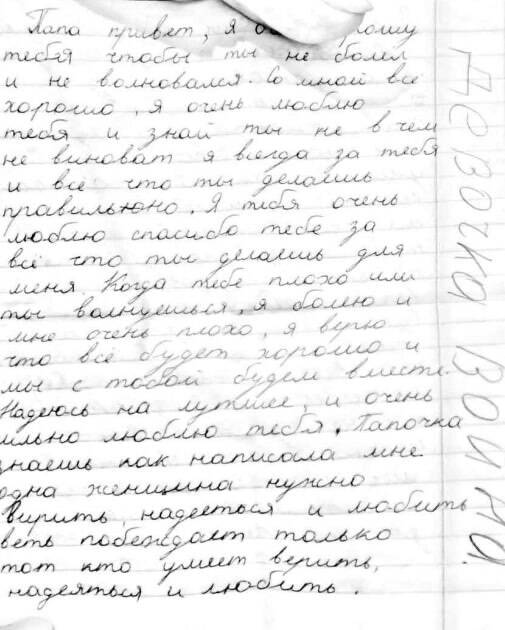 Папа привет, я прошу
тебя чтобы ты не болел
и не волновался. Со мной все
хорошо, я очень люблю
тебя и знай ты не в чем
не виноват я всегда за тебя
и все что ты делаешь
правильюно. Я тебя очень
люблю спасибо тебе за
всё что ты делаешь для
меня. Когда тебе плохо или
ты волнуешься, я болею и
мне очень плохо, я верю
что все будет хорошо и
мы с тобой будем вместе.
Надеюсь на лутшее, и очень
люблю тебя. Папочка
знаешь как написала мне
одна женщина нужно
вирить, надееться и любить
веть побеждает только
тот кто умеет верить,
надеяться и любить.
Девочка Война